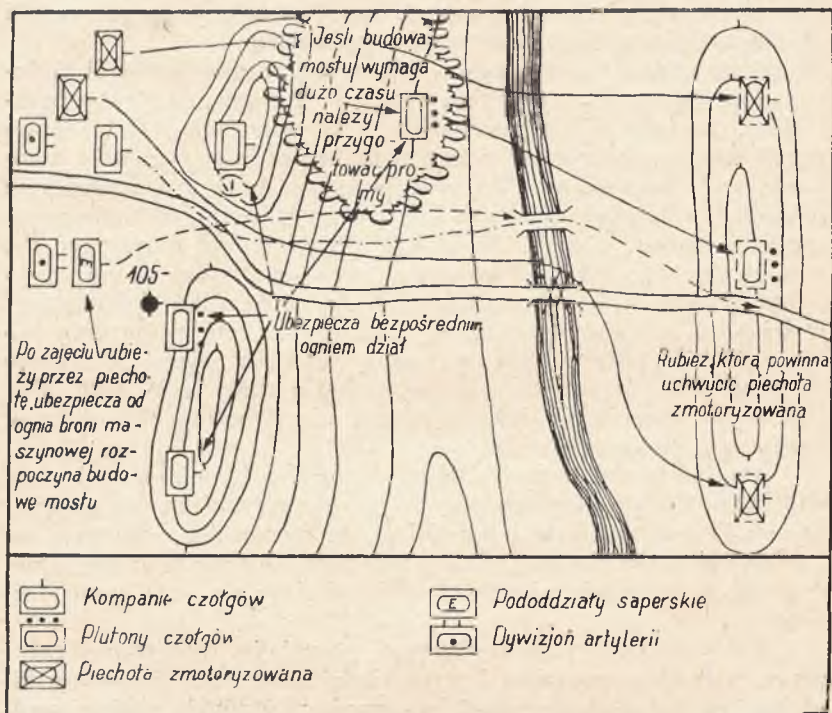 Jeśli budowa
mostu wymaga
dużo czasu
należy
przygo-
tować pro-
my
105-
Ubezpiecza bezpośrednim
ogniem dział
Po zajęciu rubie-
ży przez piecho-
tę, ubezpiecza od
ognia broni ma-
szynowej roz-
poczyna budo-
wę mostu
Rubież, którą powinna
uchwycić piechota
zmotoryzowana
Kompanie czołgów
Plutony czołgów
Piechota zmotoryzowana
E
Pododdziały saperskie
Dywizjon artylerii